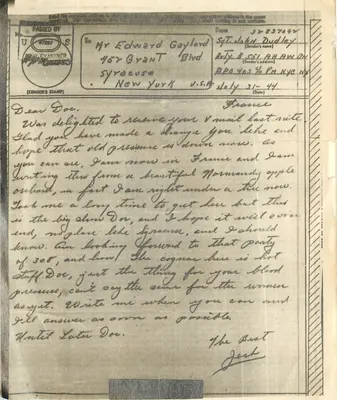 PASSED BY
U S
ARMY EXAMINER
(CENSOR'S STAMP)
To Mr Edward Gaylord
452 Grant Blvd
Syracuse
New York U.S.A
From
Sgt John Dudley
(Sender's name)
Btry B 551 AAAW BN
(Sender's address)
APO 403 % PM NYC NY
July 31-44
(Date)
France
Dear Doc.
Was delighted to receive your V mail last nite.
Glad you have made a change you like and
hope that old pressure is down now. As
you can see, I am now in France and I am
writing this from a beautiful Normandy apple
orchard, in fact I am right under a tree now.
Took me a long time to get here but this
is the big show Doc, and I hope it will soon
end, no place like Syracuse, and I should
know. Am looking forward to that party
of 308', and how. The cognac here is hot
stuff Doc, just the thing for your blood
pressure, can't say the same for the women
as yet. Write me when you can and
I'll answer as soon as possible.
Until Later Doc.
The Best
Jack